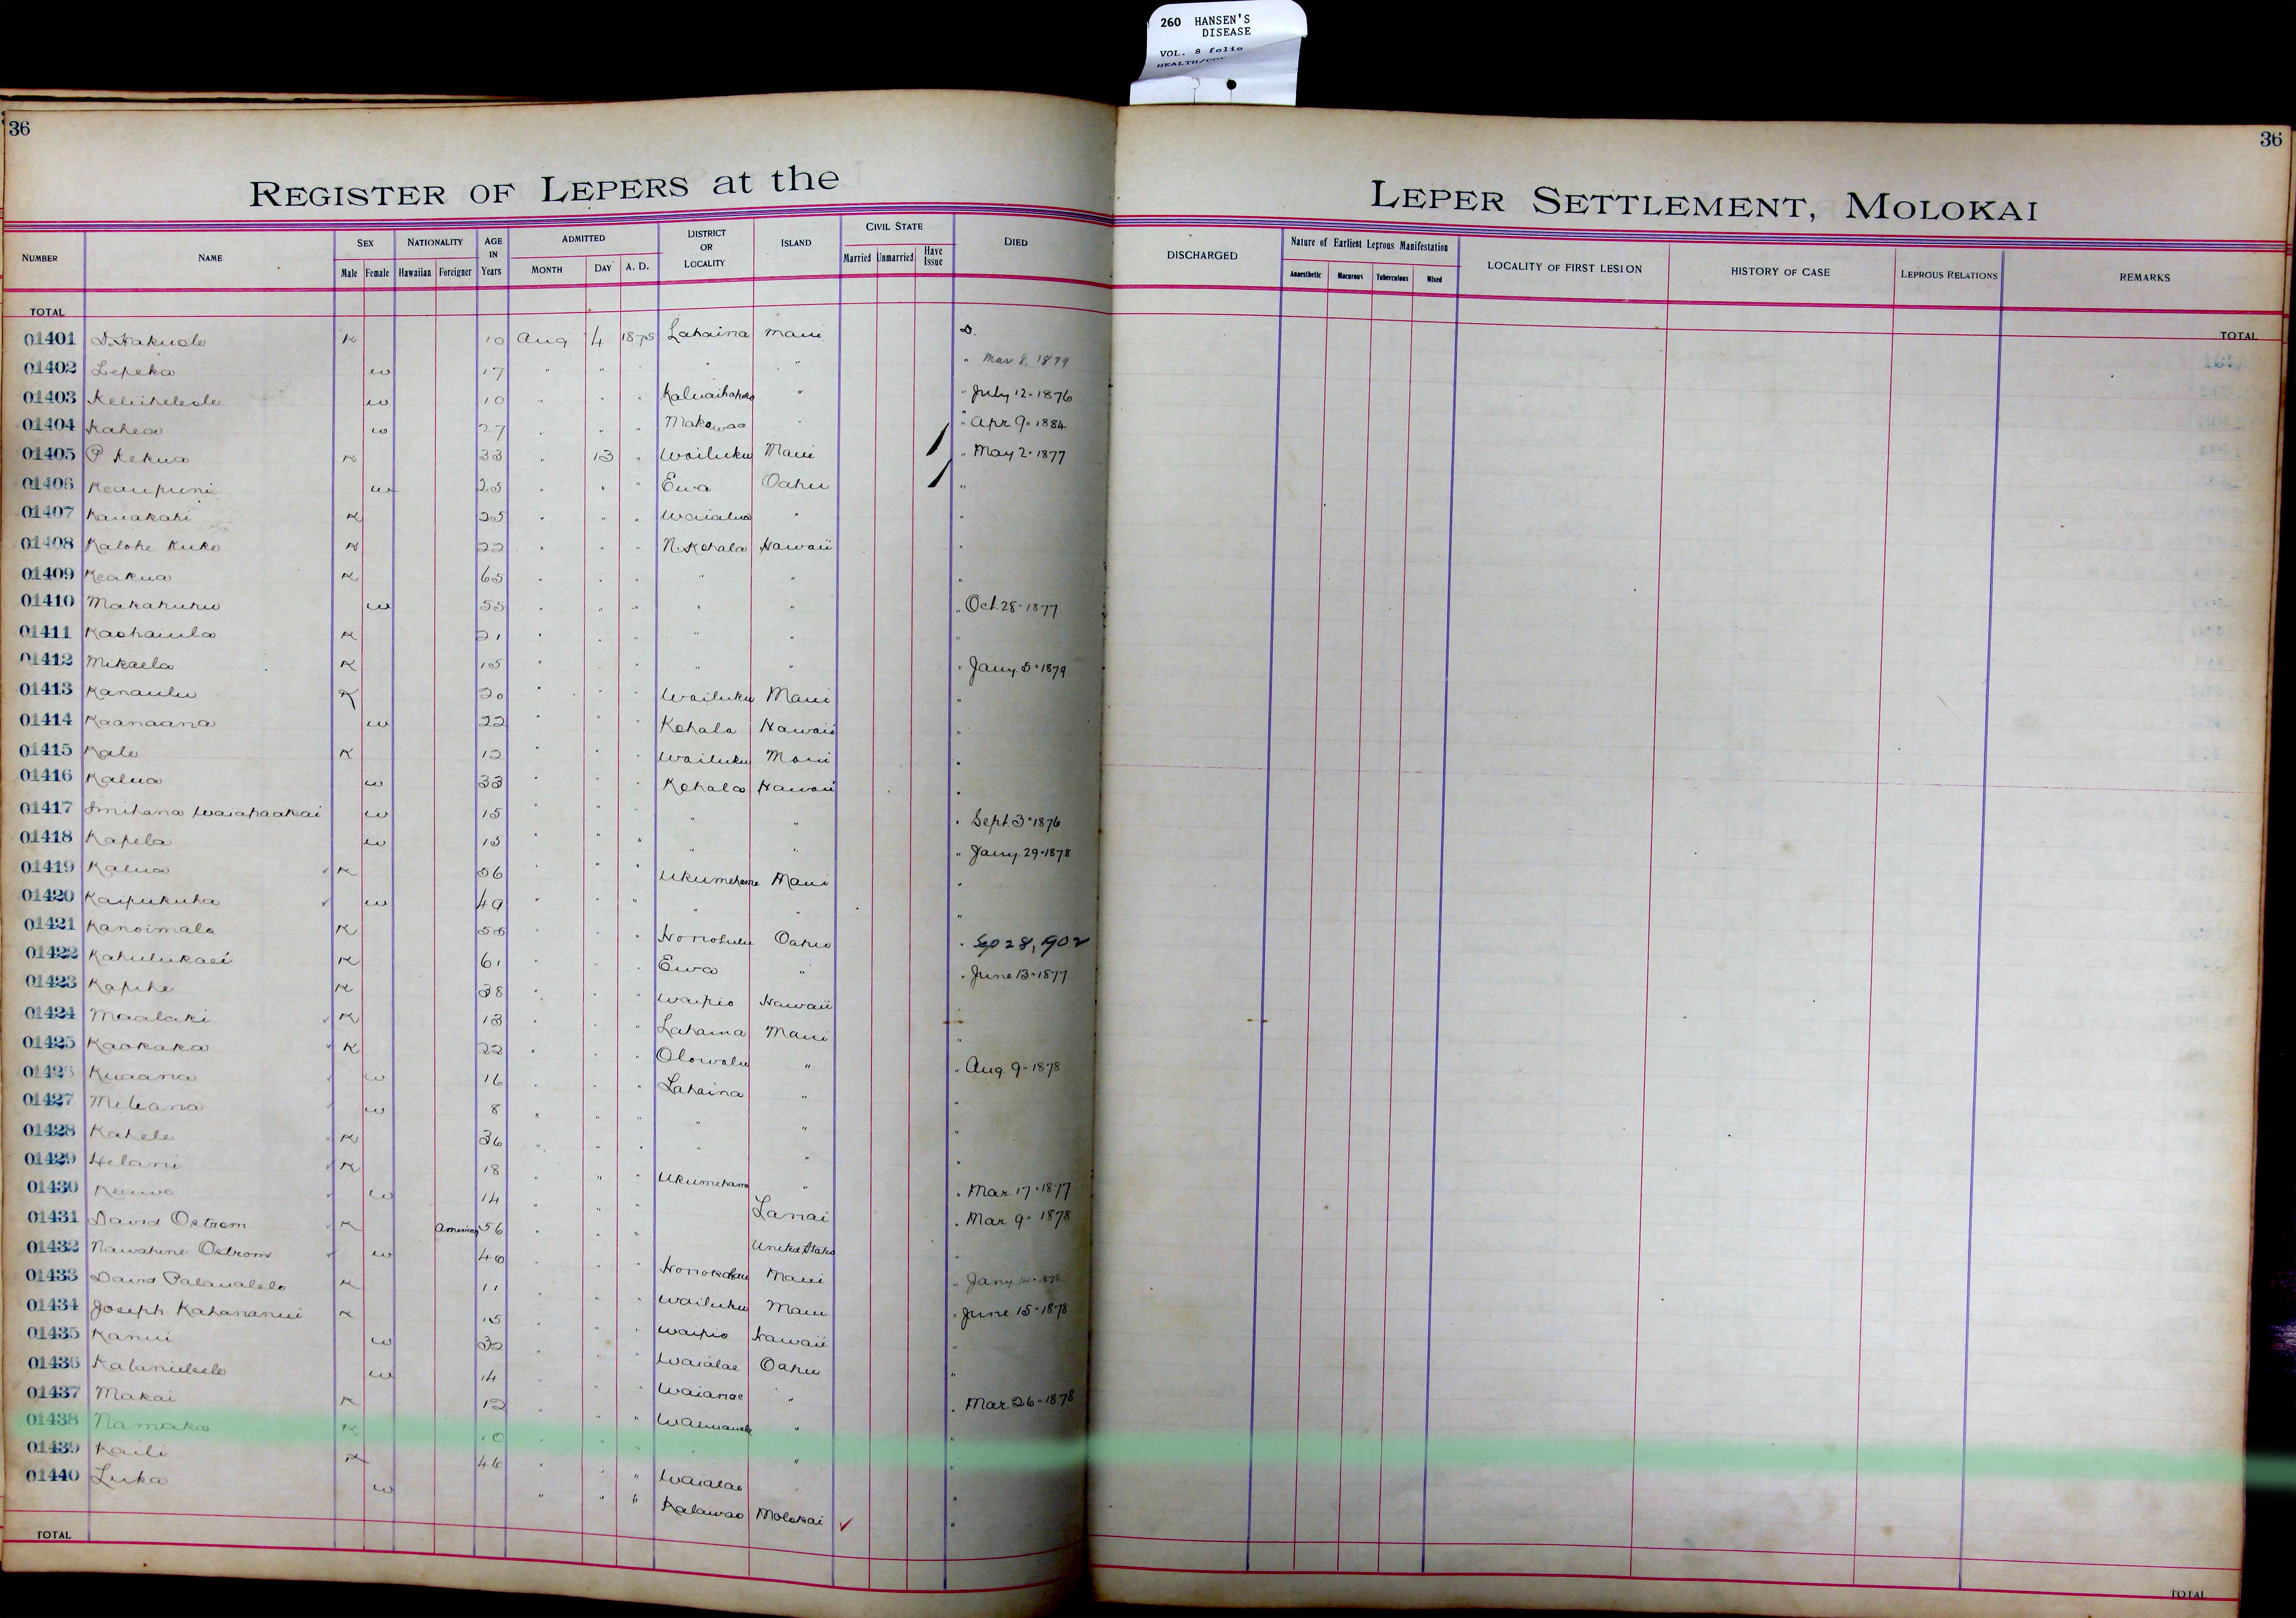 260 HANSEN'S
DISEASE
VOL. 8 folio
36
36
REGISTER OF LEPERS at the
LEPER SETTLEMENT, MOLOKAI
NUMBER NAME SEX Male Female NATIONALITY Hawaiian Foreigner AGE IN Years ADMITTED MONTH DAY A. D. DISTRICT OR LOCALITY ISLAND CIVIL STATE Married Unmarried Have Issue DIED
DISCHARGED Nature of Earliest Leprous Manifestation Anaesthetic Macurous Tuberculous Mixed LOCALITY OF FIRST LESION HISTORY OF CASE LEPROUS RELATIONS REMARKS
TOTAL
TOTAL
01401 D. Hakuole K 10 Aug 4 1875 Lahaina Maui D.
01402 Lepeka w 17 " " " " " " Mar 8, 1879
01403 w 10 " " " " " July 12-1876
01404 Kahea w 27 " " " Makawao " " Apr 9-1884
01405 P Kekua K 33 " 13 " Wailuku Maui " May 2-1877
01406 Keaupuni w 25 " " " Ewa Oahu "
01407 Kauakahi K 25 " " " Waialua " "
01408 Kalohe Kuke K 22 " " " N. Kohala Hawaii "
01409 Keakua K 65 " " " " " "
01410 Makahuhu w 55 " " " " " " Oct. 28-1877
01411 Kaohaiula K 21 " " " " " "
01412 Mikaela K 15 " " " " " " Jany 5-1879
01413 Kanaulu K 20 " " " Wailuku Maui "
01414 Kaanaana w 22 " " " Kohala Hawaii "
01415 Kale K 12 " " " Wailuku Maui "
01416 Kalua w 33 " " " Kohala Hawaii "
01417 Smihana Waiahaakai w 15 " " " " " " Sept. 3-1876
01418 Kapela w 15 " " " " " " Jany. 29-1878
01419 Kalua K 56 " " " Ukumehame Maui "
01420 Kaipukuha w 49 " " " " " "
01421 Kanoimalo K 55 " " " Honolulu Oahu " Sep 28, 1902
01422 Kahulukaei K 61 " " " Ewa " " June 13-1877
01423 Kapihe K 38 " " " Waipio Hawaii
01424 Maalaki K 13 " " " Lahaina Maui "
01425 Kaokaka K 22 " " " Olowalu " " Aug. 9-1878
01426 Kuaana w 16 " " " Lahaina " "
01427 Meleana w 8 " " " " " "
01428 Kahele K 36 " " " " " "
01429 Helani K 18 " " " Ukumehame " " Mar. 17-1877
01430 Keawe w 14 " " " Lanai " Mar. 9-1878
01431 David Ostrom K American 56 " " " United States "
01432 Nawahine Ostrom w 40 " " " Honokohau Maui " Jany. 1878
01433 David Palaualelo K 11 " " " Wailuku Maui " June 15-1878
01434 Joseph Kahananui K 15 " " " Waipio Hawaii "
01435 Kanui w 32 " " " Waialae Oahu "
01436 w 14 " " " Waianae " " Mar. 26-1878
01437 Makai K 12 " " " " "
01438 Namaka K 10 " " " " " "
01439 Kaili K 46 " " " Waialae " "
01440 Luka w " " " Kalawao Molokai ✓ "
TOTAL
TOTAL